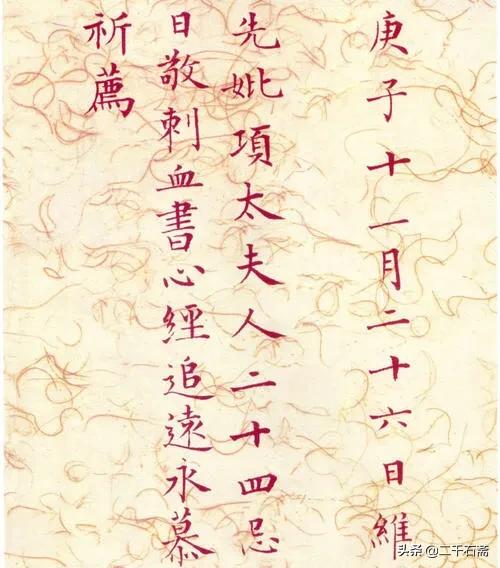 庚子十一月二十六日維
先妣項太夫人二十四忌
日敬刺血書心經追遠永慕
祈薦
头条@二千石斋